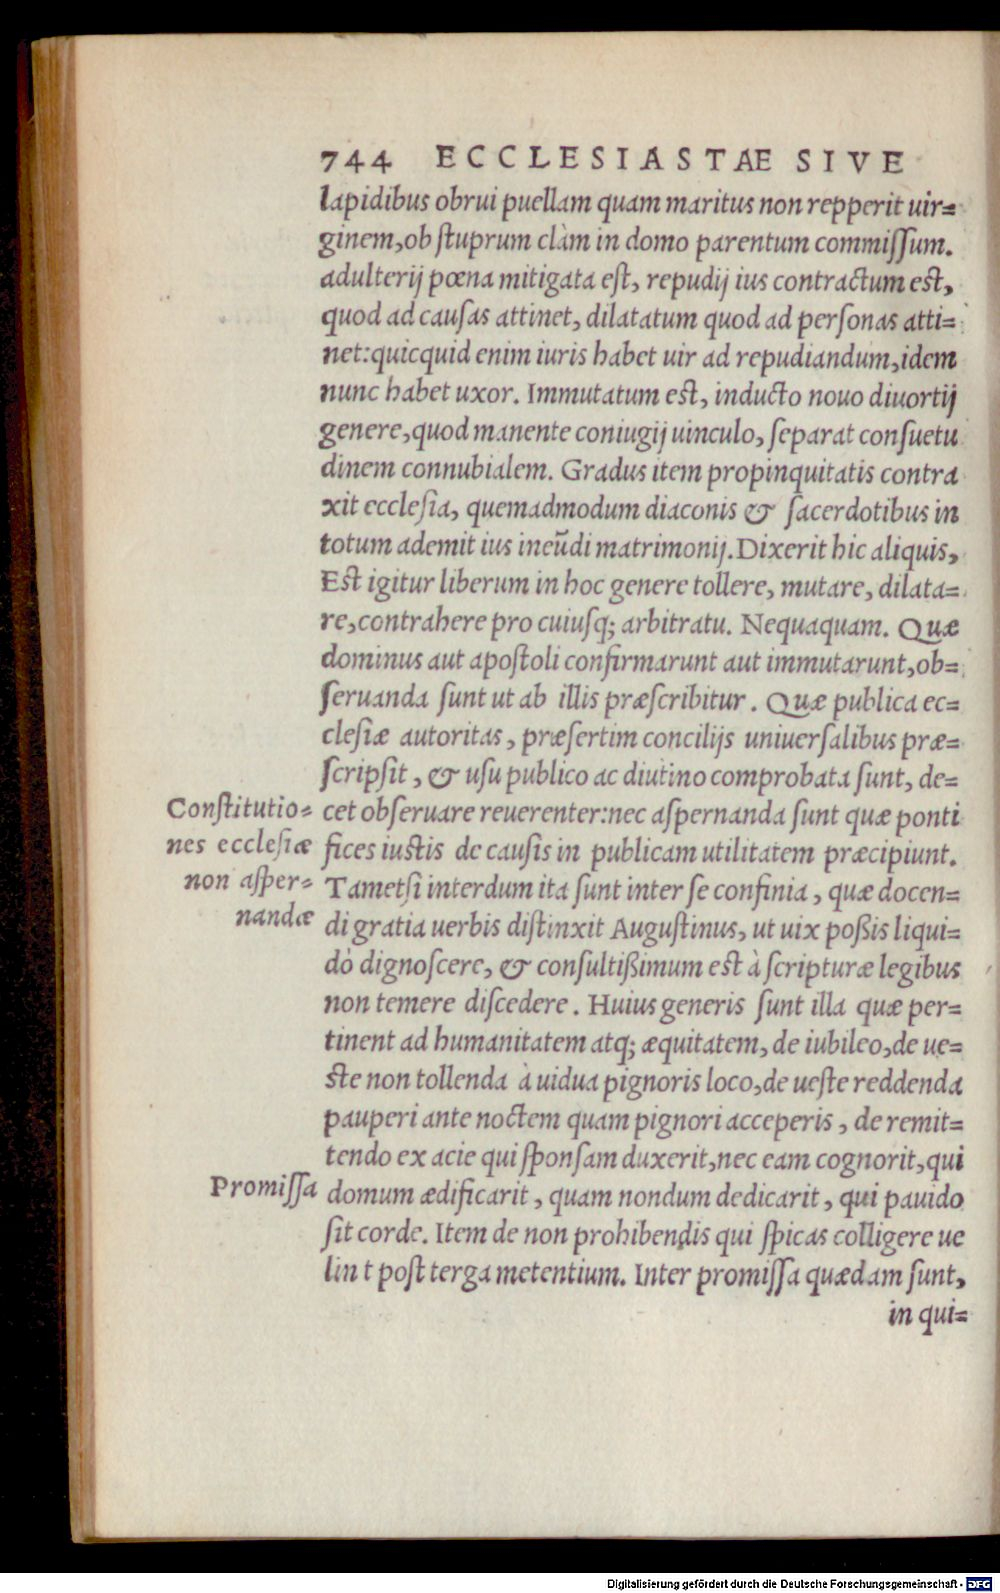 744 ECCLESIASTÆ SIVE
lapidibus obrui puellam quam maritus non repperit uir=
ginem, ob ſtuprum clàm in domo parentum commiſſum.
adulterij pœna mitigata eſt, repudij ius contractum eſt,
quod ad cauſas attinet, dilatatum quod ad perſonas atti=
net: quicquid enim iuris habet uir ad repudiandum, idem
nunc habet uxor. Immutatum eſt, inducto nouo diuortij
genere, quod manente coniugij uinculo, ſeparat conſuetu
dinem connubialem. Gradus item propinquitatis contra
xit eccleſia, quemadmodum diaconis & ſacerdotibus in
totum ademit ius ineūdi matrimonij. Dixerit hic aliquis,
Eſt igitur liberum in hoc genere tollere, mutare, dilata=
re, contrahere pro cuiuſq; arbitratu. Nequaquam. Quæ
dominus aut apoſtoli confirmarunt aut immutarunt, ob=
ſeruanda ſunt ut ab illis præſcribitur. Quæ publica ec=
cleſiæ autoritas, præſertim concilijs uniuerſalibus præ=
ſcripſit, & uſu publico ac diutino comprobata ſunt, de=
Conſtitutio=
nes eccleſiæ
non aſper=
nandæ
cet obſeruare reuerenter: nec aſpernanda ſunt quæ ponti
fices iuſtis de cauſis in publicam utilitatem præcipiunt.
Tametſi interdum ita ſunt inter ſe confinia, quæ docen=
di gratia uerbis diſtinxit Auguſtinus, ut uix poßis liqui=
dò dignoſcere, & conſultißimum eſt à ſcripturæ legibus
non temere diſcedere. Huius generis ſunt illa quæ per=
tinent ad humanitatem atq; æquitatem, de iubileo, de ue=
ſte non tollenda à uidua pignoris loco, de ueſte reddenda
pauperi ante noctem quam pignori acceperis, de remit=
tendo ex acie qui ſponſam duxerit, nec eam cognorit, qui
Promiſſa
domum ædificarit, quam nondum dedicarit, qui pauido
ſit corde. Item de non prohibendis qui ſpicas colligere ue
lin t poſt terga metentium. Inter promiſſa quædam ſunt,
in qui=
Digitalisierung gefördert durch die Deutsche Forschungsgemeinschaft - DFG